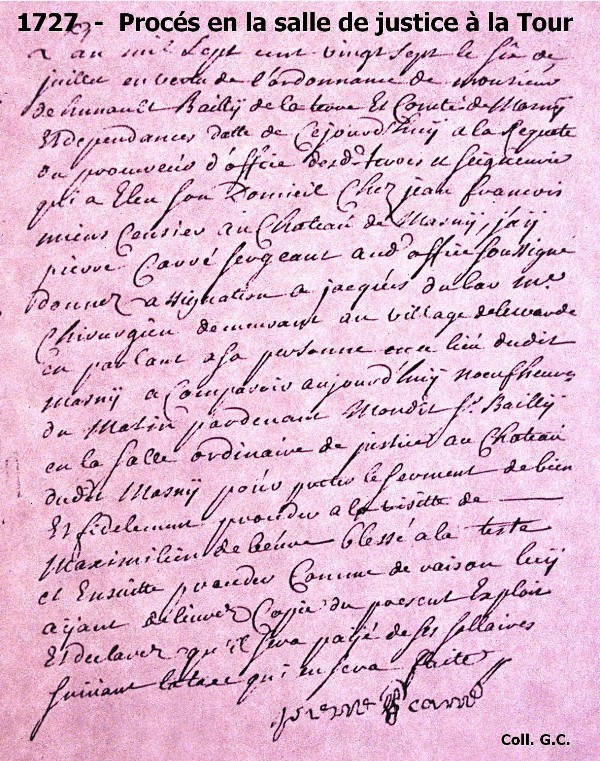 1727 - Procés en la salle de justice à la Tour
L'an mil Sept cent vingt Sept le de
juillet en vertu de l'ordonnance de monsieur
Bailly de la terre Et Comté de Masny
Et dependances datte de Cejourd'huy a la Requete
du procureur d'office desdts terres et Seigneurie
qui a Eleu Son Domicil Chez jean francois
Censier au Chateau de Masny, j'ay
pierre Carré Sergeant aud office Soussigné
donner assignation a jacques du lar me
Chirurgien demeurant au village de lewarde
en parlant a Sa personne en ce lieu dudit
Masny a Comparoir aujourd'huy noeuf heures
du Matin pardevant Mondit Sr Bailly
en la Salle ordinaire de justice au Chateau
dudt Masny pour preter le Serment de bien
Et fidelement proceder a la visitte de
Maximilien de beuvre blessé a la teste
et Ensuitte proceder Comme de raison luy
ayant delivrez Copie du present Exploit
Et declarez qu'il Sera payé de Ses Sallaires
Suivant la taxe qui en Sera faite
pierre carré
Coll. G.C.